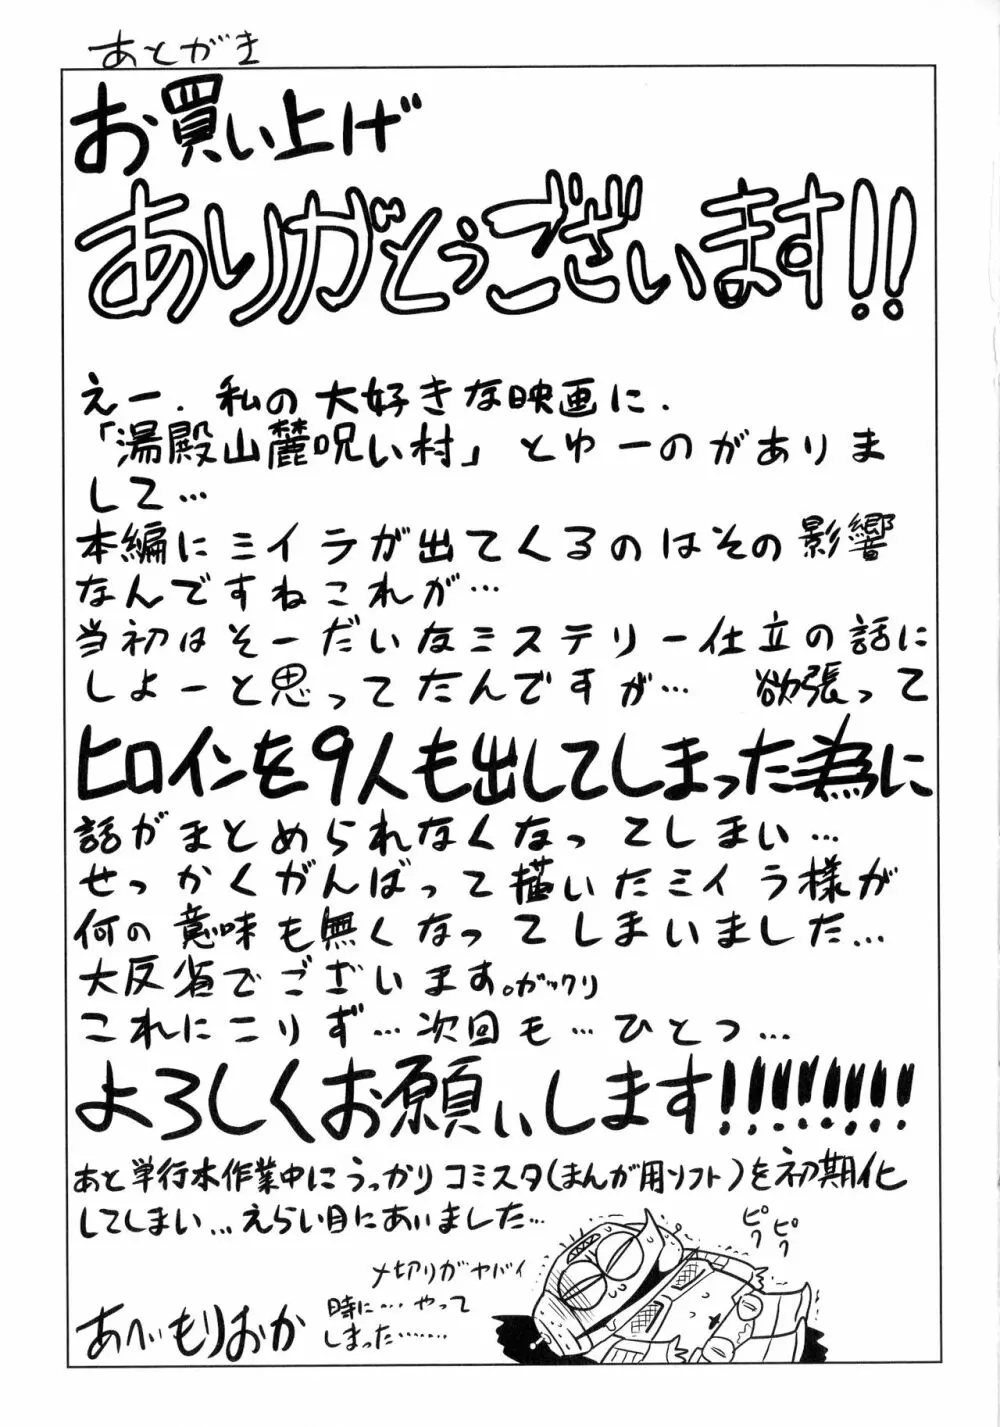 あとがき
お買い上げ
ありがとうございます!!
えー．私の大好きな映画に．
「湯殿山麓呪い村」とゆーのがありま
して…
本編にミイラが出てくるのはその影響
なんですねこれが…
当初はそーだいなミステリー仕立の話に
しよーと思ってたんですが… 欲張って
ヒロインを9人も出してしまった為に
話がまとめられなくなってしまい…
せっかくがんばって描いたミイラ様が
何の意味も無くなってしまいました…
大反省でございます。ガックリ
これにこりず…次回も…ひとつ…
よろしくお願いします!!!!!!!!
あと単行本作業中にうっかりコミスタ(まんが用ソフト)を初期化
してしまい…えらい目にあいました…
ピク
ピク
〆切りがヤバイ
時に…やって
しまった……
あへい もりおか